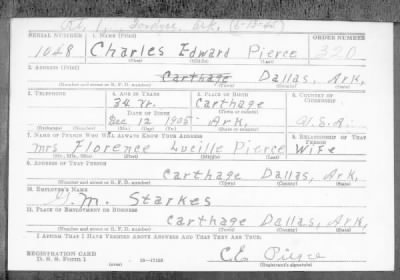 Fordyce, Ark. (6-13-42)
SERIAL NUMBER 1. NAME (Print) ORDER NUMBER
1048 Charles Edward Pierce 320
(First) (Middle) (Last)
2. ADDRESS (Print)
Carthage Dallas, Ark,
(Number and street or R. F. D. number) (Town) (County) (State)
3. TELEPHONE 4. AGE IN YEARS 5. PLACE OF BIRTH 6. COUNTRY OF CITIZENSHIP
34 Yr. Carthage
DATE OF BIRTH (Town or county)
Dec 12 1905 Ark, U.S.A.
(Exchange) (Number) (Mo.) (Day) (Yr.) (State or country)
7. NAME OF PERSON WHO WILL ALWAYS KNOW YOUR ADDRESS 8. RELATIONSHIP OF THAT PERSON
Mrs Florence Lucille Pierce Wife
(Mr., Mrs., Miss) (First) (Middle) (Last)
9. ADDRESS OF THAT PERSON
Carthage Dallas, Ark,
(Number and street or R. F. D. number) (Town) (County) (State)
10. EMPLOYER'S NAME
G. M. Starkes
11. PLACE OF EMPLOYMENT OR BUSINESS
Carthage Dallas, Ark,
(Number and street or R. F. D. number) (Town) (County) (State)
I AFFIRM THAT I HAVE VERIFIED ABOVE ANSWERS AND THAT THEY ARE TRUE.
REGISTRATION CARD
D. S. S. Form 1 16—17105 C.E. Pierce
(Registrant's signature)